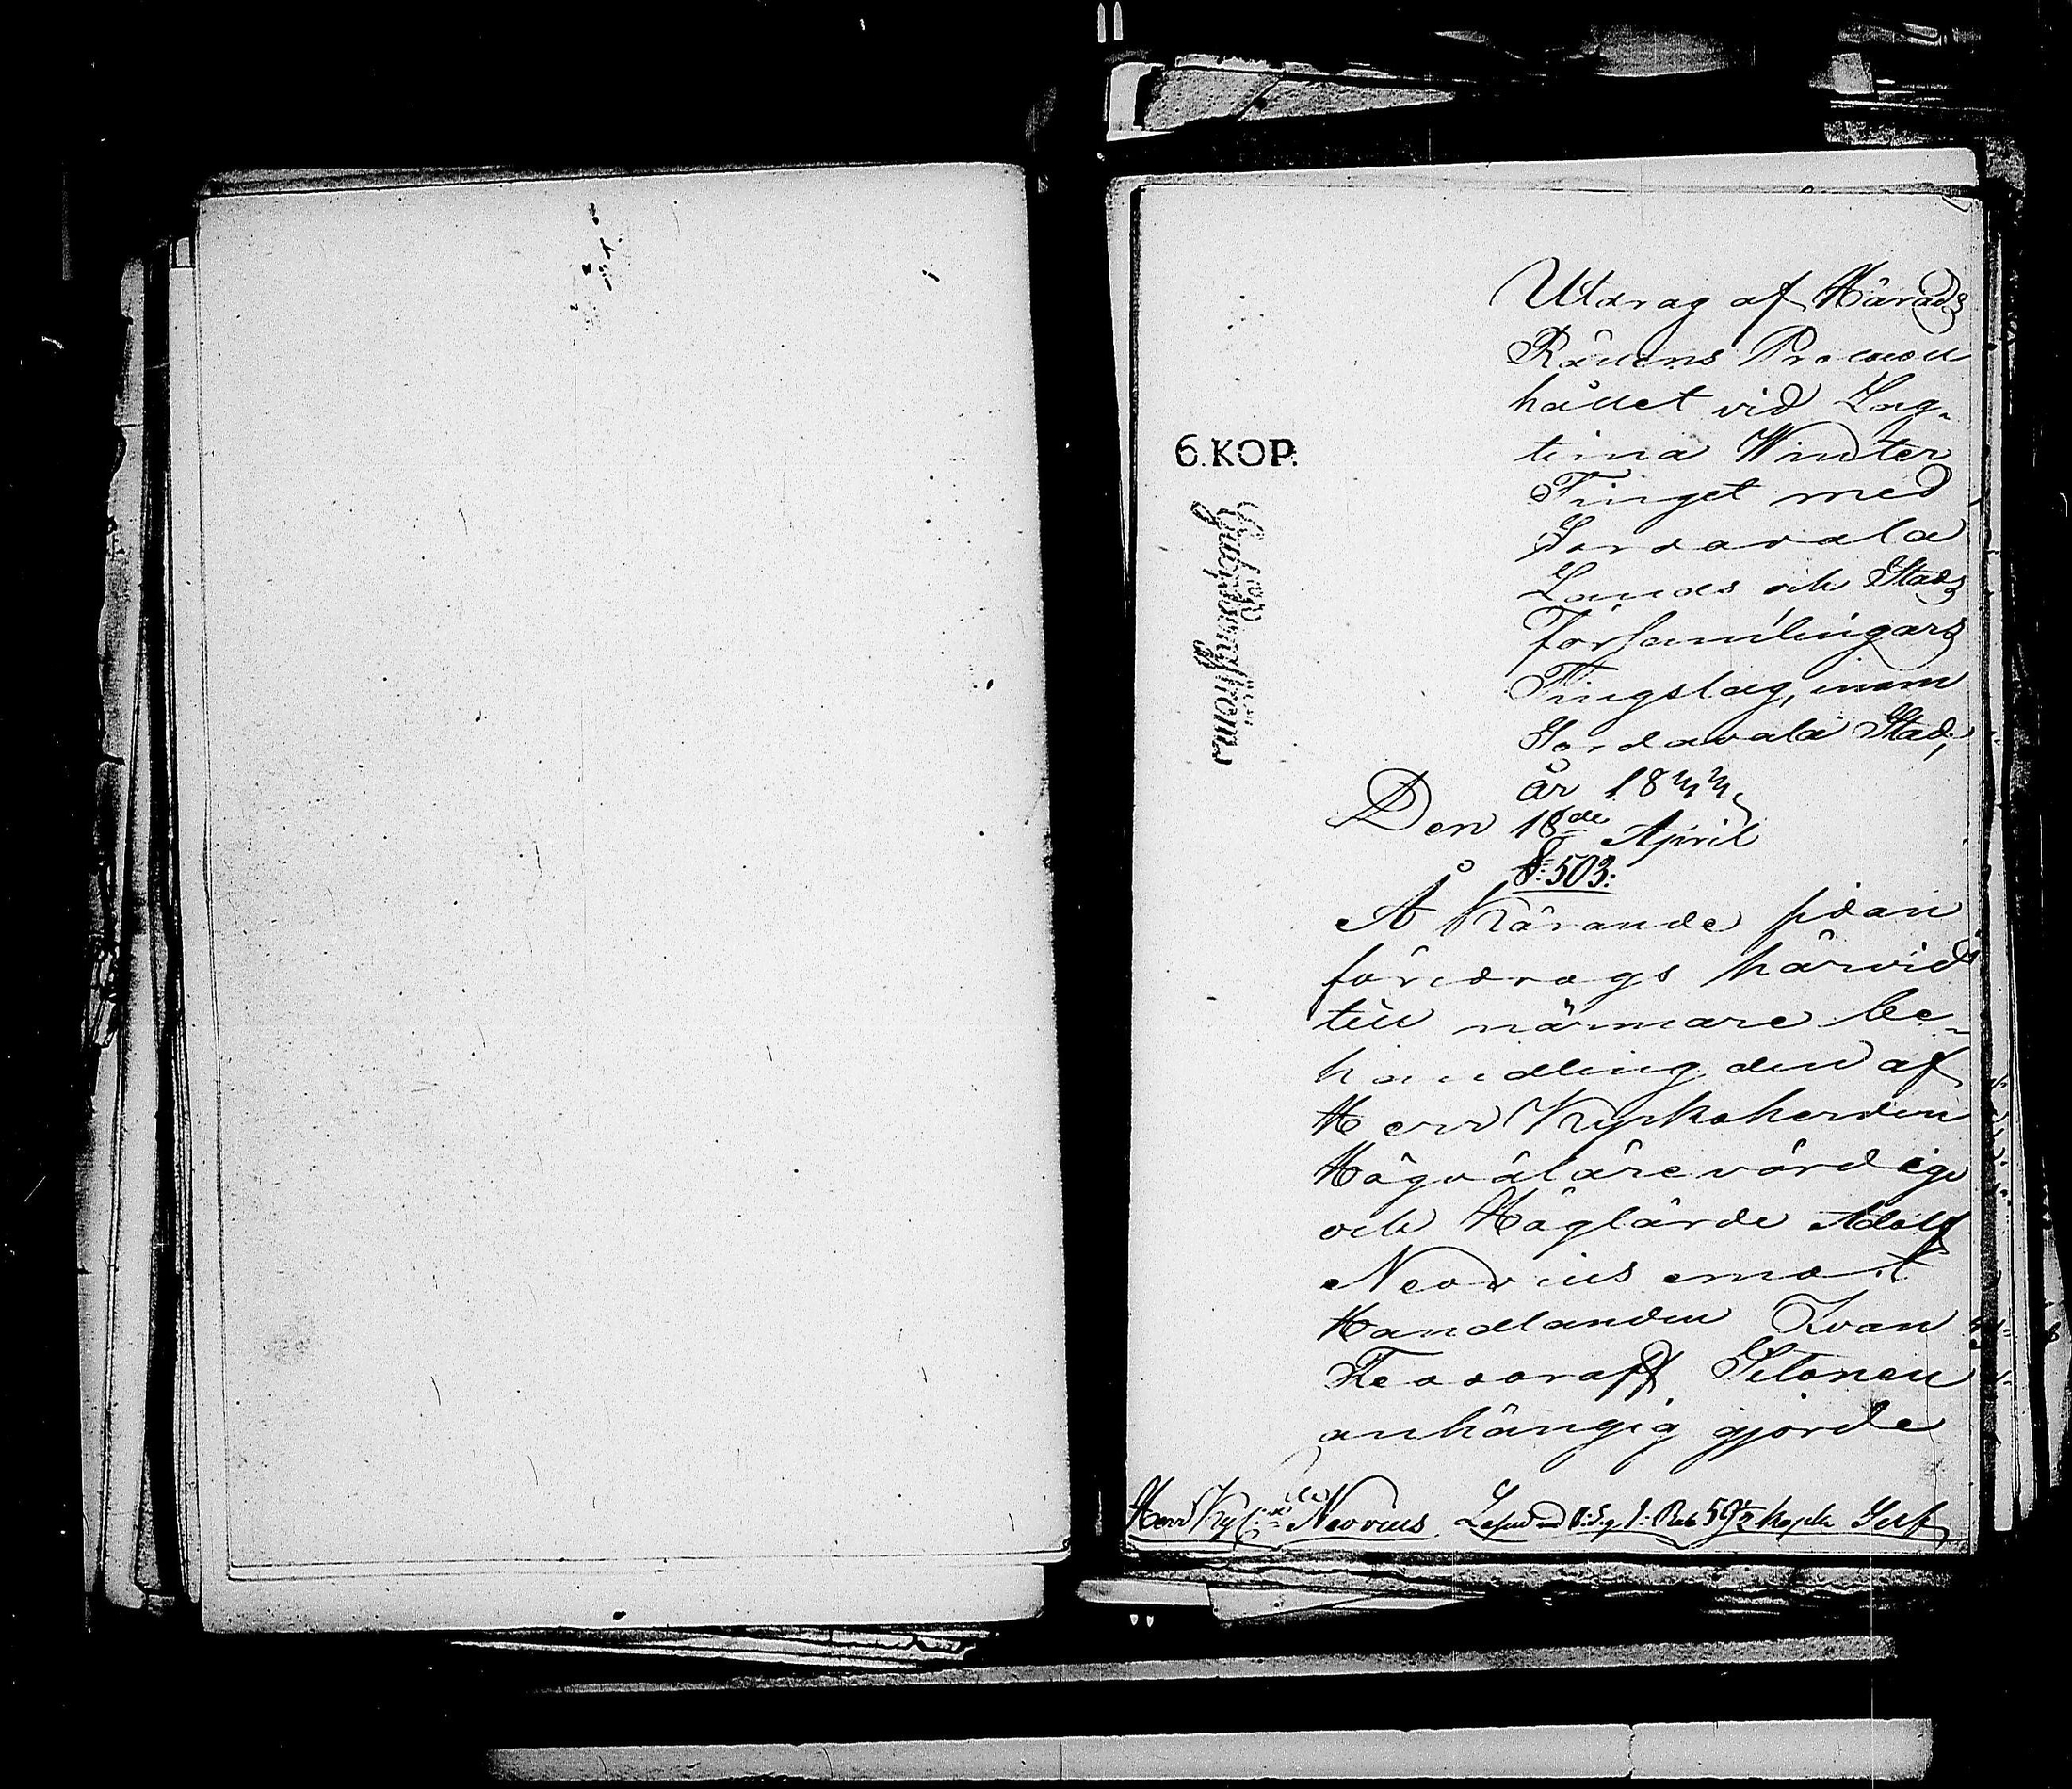 Utdrag af Härads
Rättens Protocoll
hållet vid Lag-
tima Winter
Tinget med
Sordavala
Lands och Stads
Församlingars
Tingslag, inom
Sordavala Stad,
år 1844,
Den 18de April
§: 503:
6. KOP.
A Kärande sidan
föredrogs härvid
till närmare be-
handling den af
Herr Kyrkoherden
Högvälärevördige
och Höglärde Adolf
Neovius emot
Handlanden Ivan
Feodoroff Sitonen
anhängig gjorde
Herr Ky Neovius. Lösen 1: Rub 59½ kopek Silf